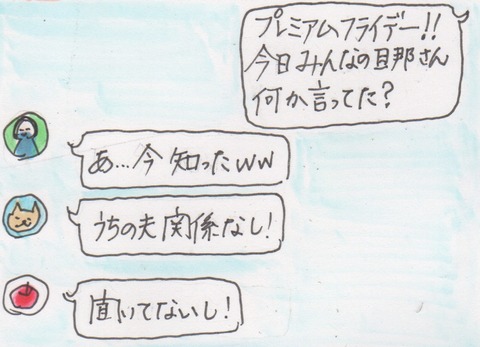 プレミアムフライデー!!
今日みんなの旦那さん
何か言ってた?
あ…今知ったww
うちの夫関係なし!
聞いてないし!